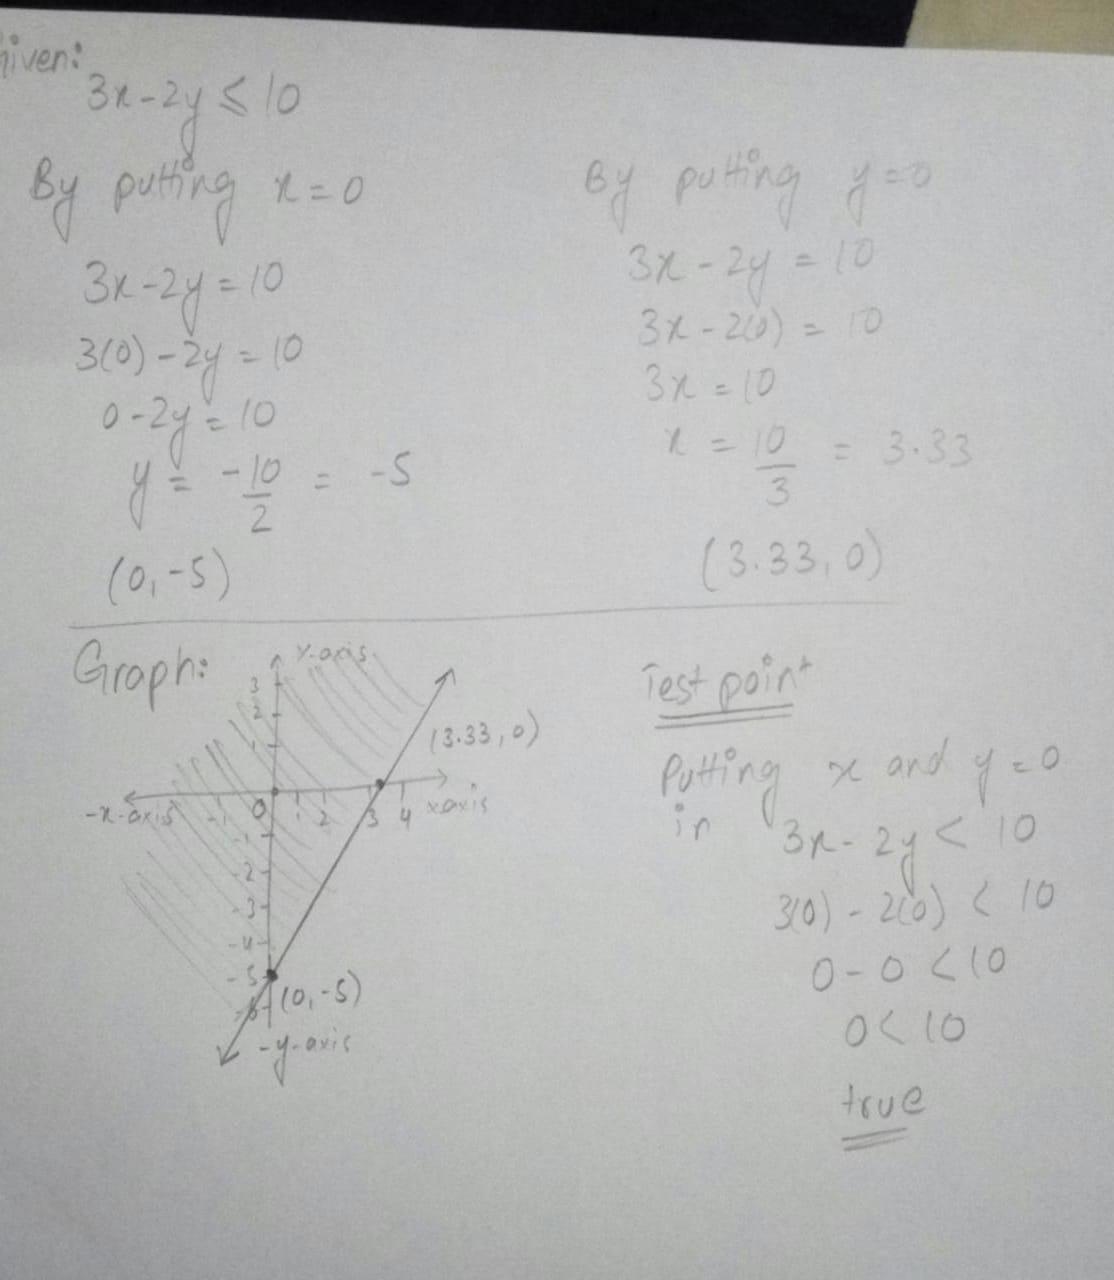 Given:
3x-2y ≤ 10
By putting x=0
3x-2y=10
3(0)-2y=10
0-2y=10
y = -10/2 = -5
(0,-5)
By putting y=0
3x-2y=10
3x-2(0)=10
3x=10
x = 10/3 = 3.33
(3.33,0)
Graph:
Y-axis
3
2
1
(3.33,0)
-x-axis -1 0 1 2 3 4 x axis
-1
-2
-3
-4
-5
(0,-5)
-6
-y-axis
Test point
Putting x and y=0
in 3x-2y < 10
3(0)-2(0) < 10
0-0 < 10
0 < 10
true